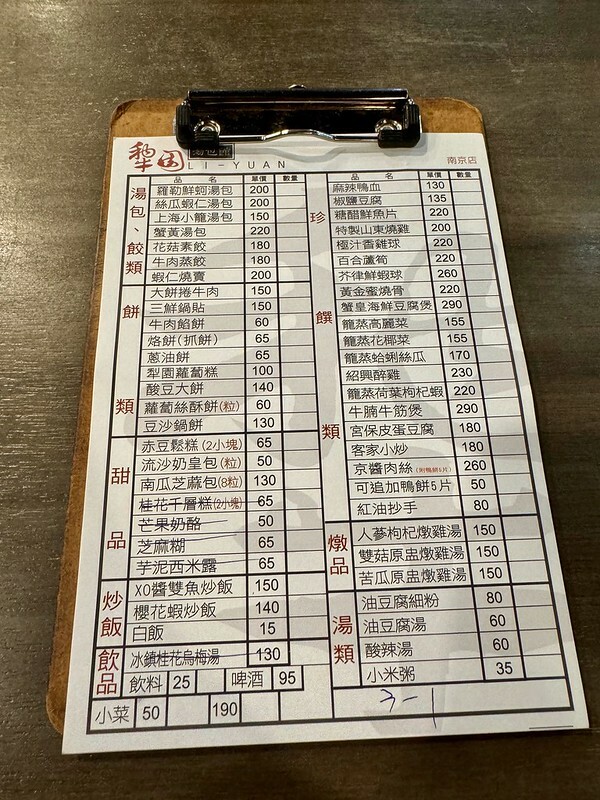 犁园 湯包館
LI-YUAN
南京店
品 名 單價 數量
湯包、餃類
羅勒鮮蚵湯包 200
絲瓜蝦仁湯包 200
上海小籠湯包 150
蟹黃湯包 220
花菇素餃 180
牛肉蒸餃 180
蝦仁燒賣 200
餅類
大餅捲牛肉 150
三鮮鍋貼 150
牛肉餡餅 60
烙餅(抓餅) 65
蔥油餅 65
犁園蘿蔔糕 100
酸豆大餅 140
蘿蔔絲酥餅(粒) 60
豆沙鍋餅 130
甜品
赤豆鬆糕(2小塊) 65
流沙奶皇包(粒) 50
南瓜芝蔴包(8粒) 130
桂花千層糕(2小塊) 65
芒果奶酪 50
芝麻糊 65
芋泥西米露 65
炒飯
XO醬雙魚炒飯 150
櫻花蝦炒飯 140
白飯 15
飲品
冰鎮桂花烏梅湯 130
飲料 25 啤酒 95
小菜 50 190
品 名 單價 數量
珍饌類
麻辣鴨血 130
椒鹽豆腐 135
糖醋鮮魚片 220
特製山東燒雞 200
極汁香雞球 220
百合蘆筍 220
芥律鮮蝦球 260
黃金蜜燒骨 220
蟹皇海鮮豆腐煲 290
籠蒸高麗菜 155
籠蒸花椰菜 155
籠蒸蛤蜊絲瓜 170
紹興醉雞 230
籠蒸荷葉枸杞蝦 220
牛腩牛筋煲 290
宮保皮蛋豆腐 180
客家小炒 180
京醬肉絲(附鴨餅5片) 260
可追加鴨餅5片 50
紅油抄手 80
燉品
人蔘枸杞燉雞湯 150
雙菇原盅燉雞湯 150
苦瓜原盅燉雞湯 150
湯類
油豆腐細粉 80
油豆腐湯 60
酸辣湯 60
小米粥 35
3-1